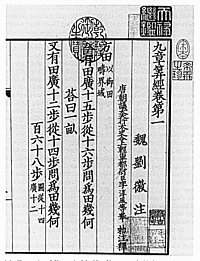 九章算經卷第一
魏劉徽注
唐朝議大夫行太史令上輕車都尉臣李淳風等奉 勑注釋
方田以御田疇界域
有田廣十五步從十六步問爲田幾何
荅曰一畝
又有田廣十二步從十四步問爲田幾何
百六十八步圖從十四廣十二